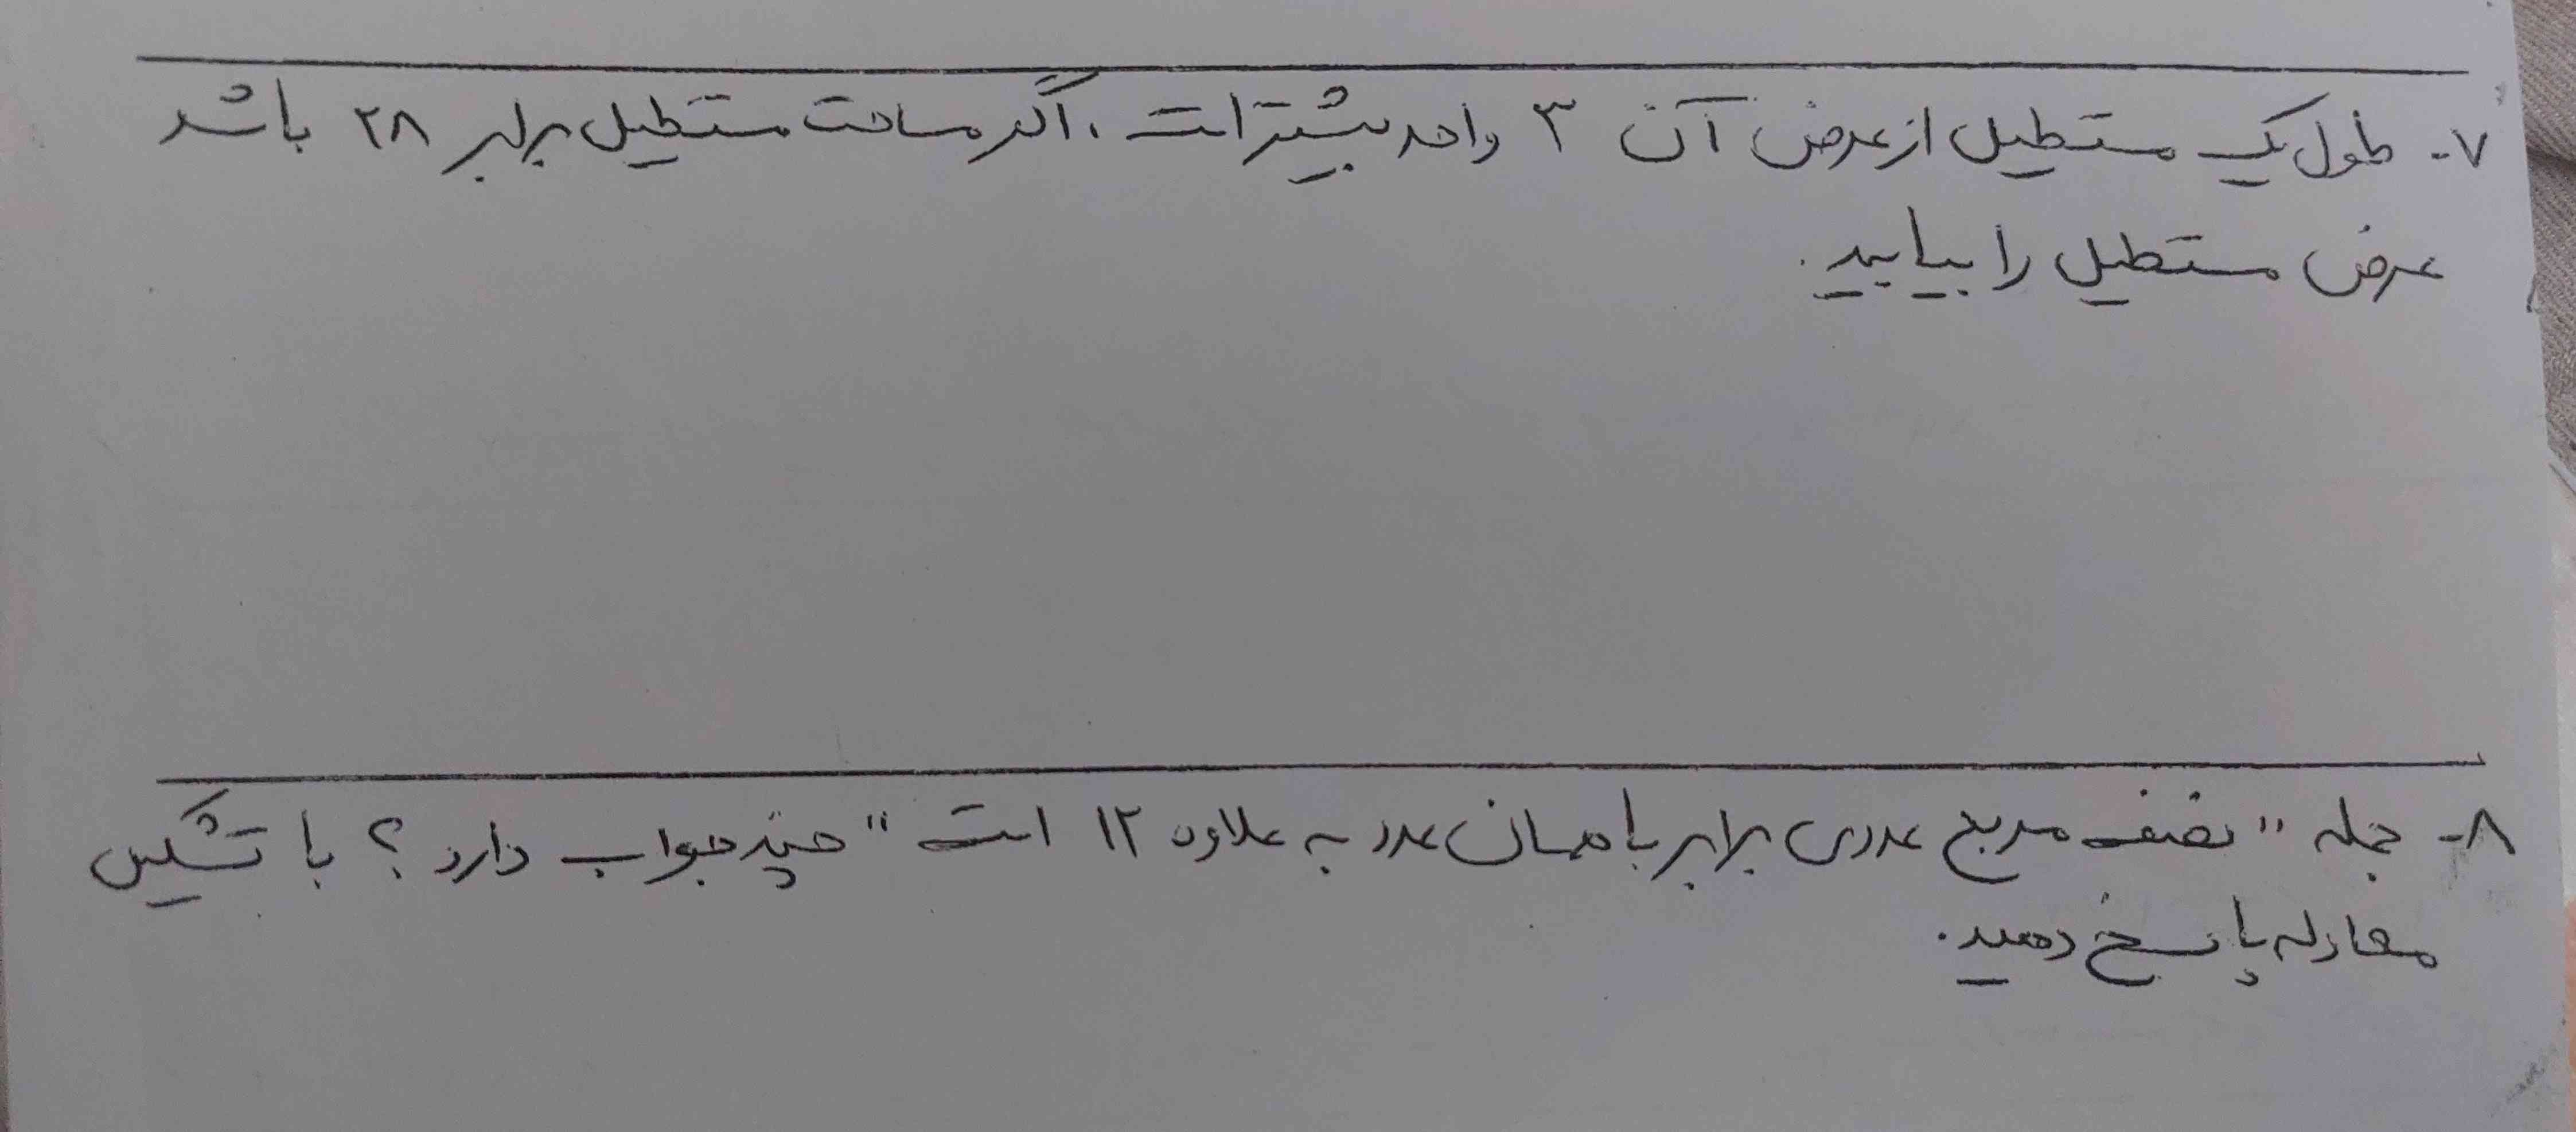 ۷- طول یک مستطیل از عرض آن ۳ واحد بیشتر است، اگر مساحت مستطیل برابر ۲۸ باشد
عرض مستطیل را بیابید.
۸- جمله "نصف مربع عددی برابر با همان عدد به علاوه ۱۲ است" چند جواب دارد؟ با تشکیل
معادله پاسخ دهید.